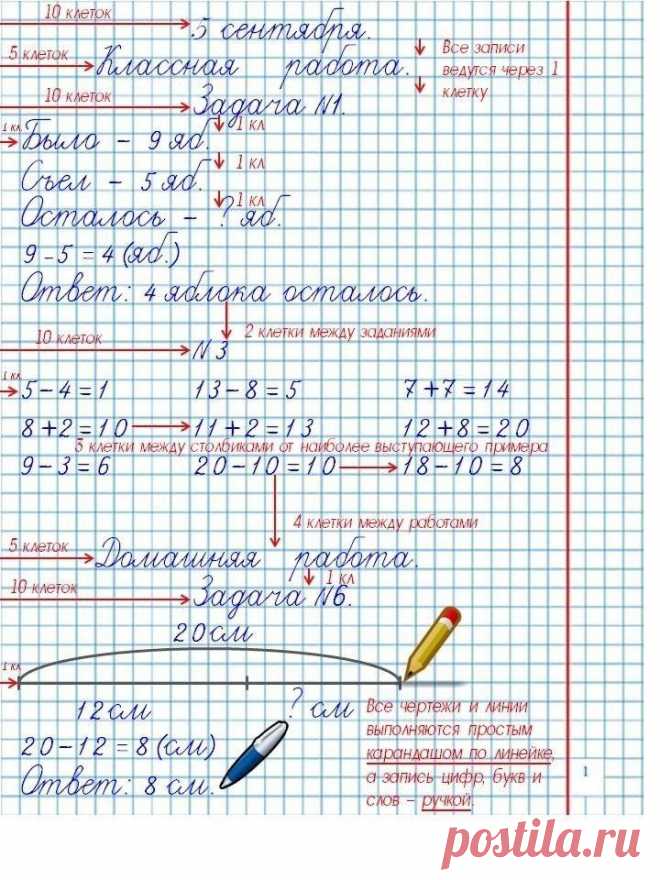 10 клеток
5 сентября.
5 клеток
Классная работа.
Все записи
ведутся через 1
клетку
10 клеток
Задача N1.
1 кл.
1 кл
Было – 9 яб.
1 кл
Съел – 5 яб.
1 кл
Осталось – ? яб.
9 – 5 = 4 (яб.)
Ответ: 4 яблока осталось.
2 клетки между заданиями
10 клеток
N 3
1 кл.
5 – 4 = 1 13 – 8 = 5 7 + 7 = 14
8 + 2 = 10 11 + 2 = 13 12 + 8 = 20
3 клетки между столбиками от наиболее выступающего примера
9 – 3 = 6 20 – 10 = 10 18 – 10 = 8
4 клетки между работами
5 клеток
Домашняя работа.
1 кл
10 клеток
Задача N6.
20 см
1 кл.
12 см ? см
20 – 12 = 8 (см)
Ответ: 8 см.
Все чертежи и линии
выполняются простым
карандашом по линейке,
а запись цифр, букв и
слов – ручкой.
1
postila.ru